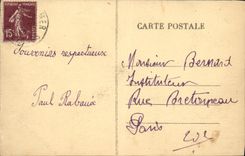 CARTE POSTALE
15c
Souvenirs respectueux
Paul Rabaud
Monsieur Bernard
Instituteur
Rue Bretonneau
Paris